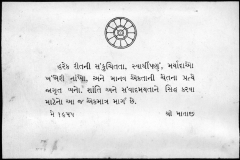 હરેક રીતની સંકુચિતતા, સ્વાર્થીપણું, મર્યાદાઓ
ખંખેરી નાંખો, અને માનવ એકતાની ચેતના પ્રત્યે
જાગૃત બનો. શાંતિ અને સંવાદમયતાને સિદ્ધ કરવા
માટેનો આ જ એકમાત્ર માર્ગ છે.
મે ૧૯૫૫ શ્રી માતાજી